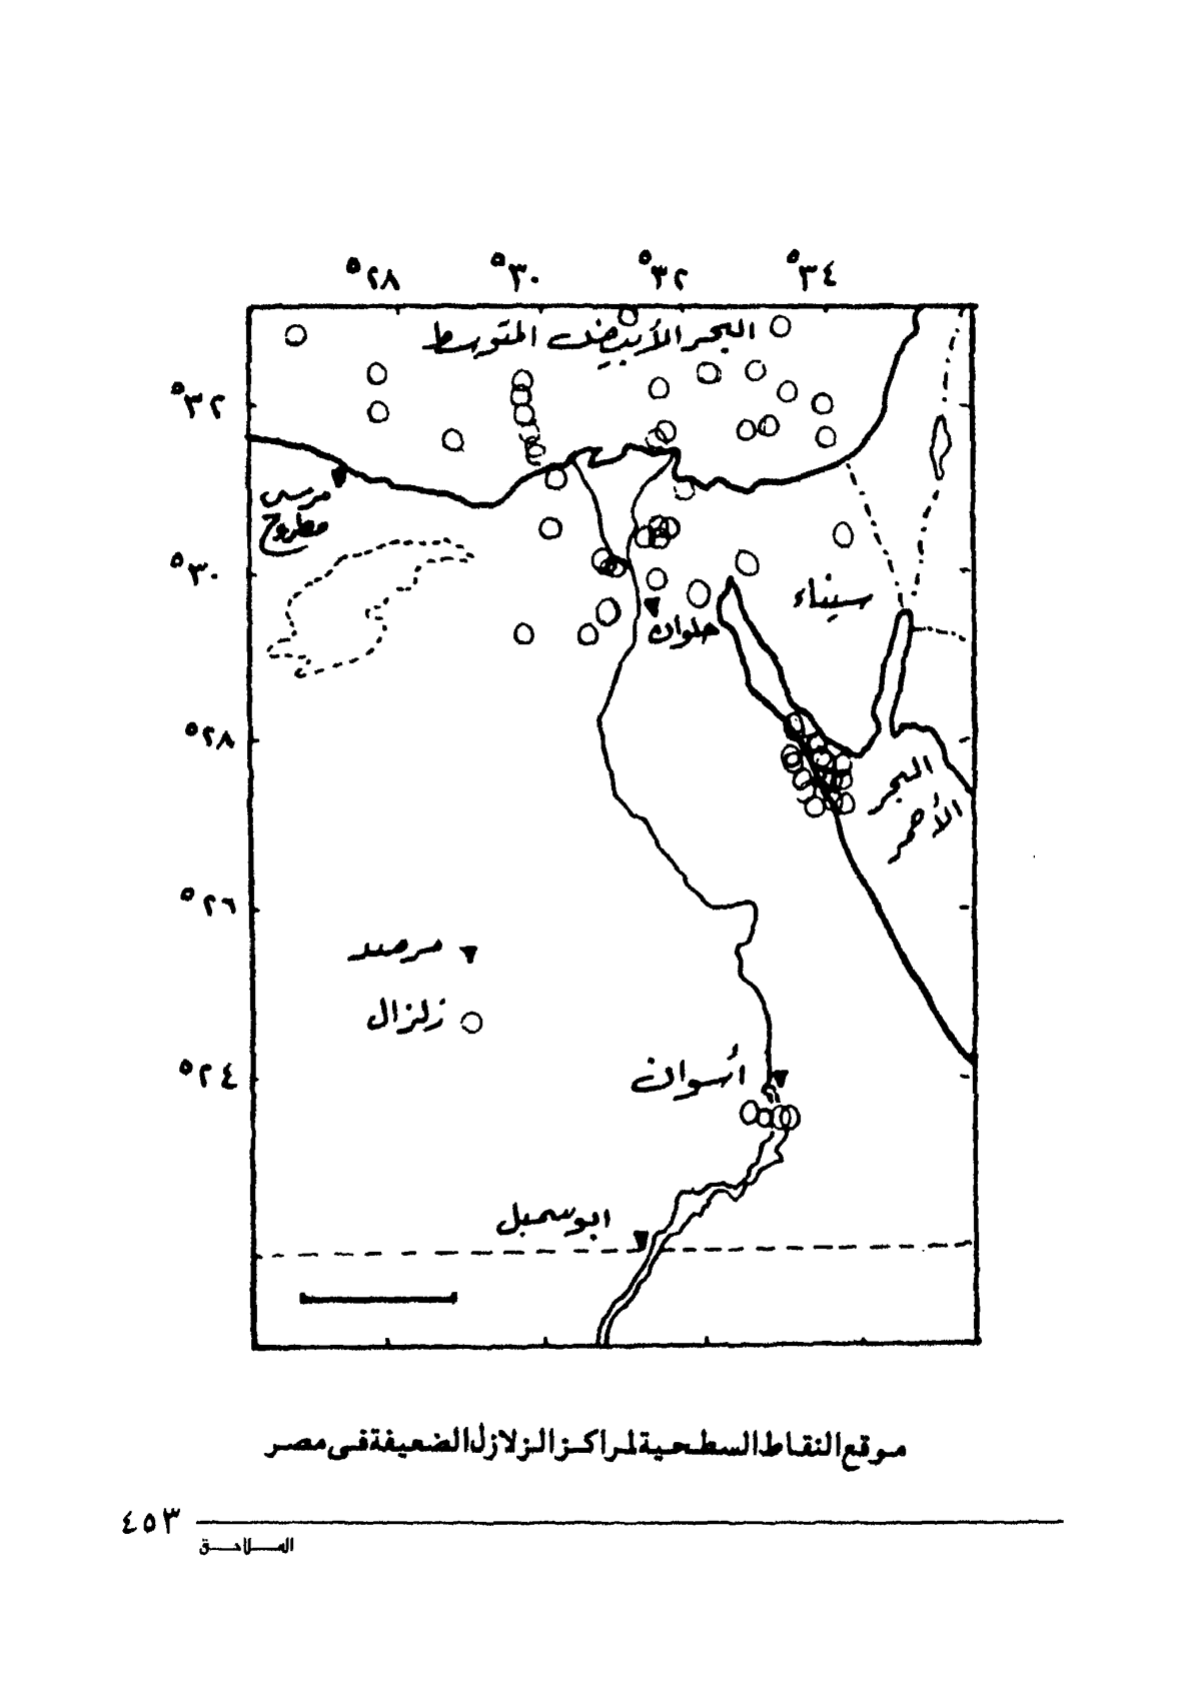 °٢٨ °٣٠ °٣٢ °٣٤
البحر الأبيض المتوسط
°٣٢
مرسى
مطروح
°٣٠
سيناء
حلوان
°٢٨
البحر
الأحمر
°٢٦
مرصد
زلزال
°٢٤
أسوان
ابو سمبل
موقع النقاط السطحية لمراكز الزلازل الضعيفة فى مصر
٤٥٣
الملاحق